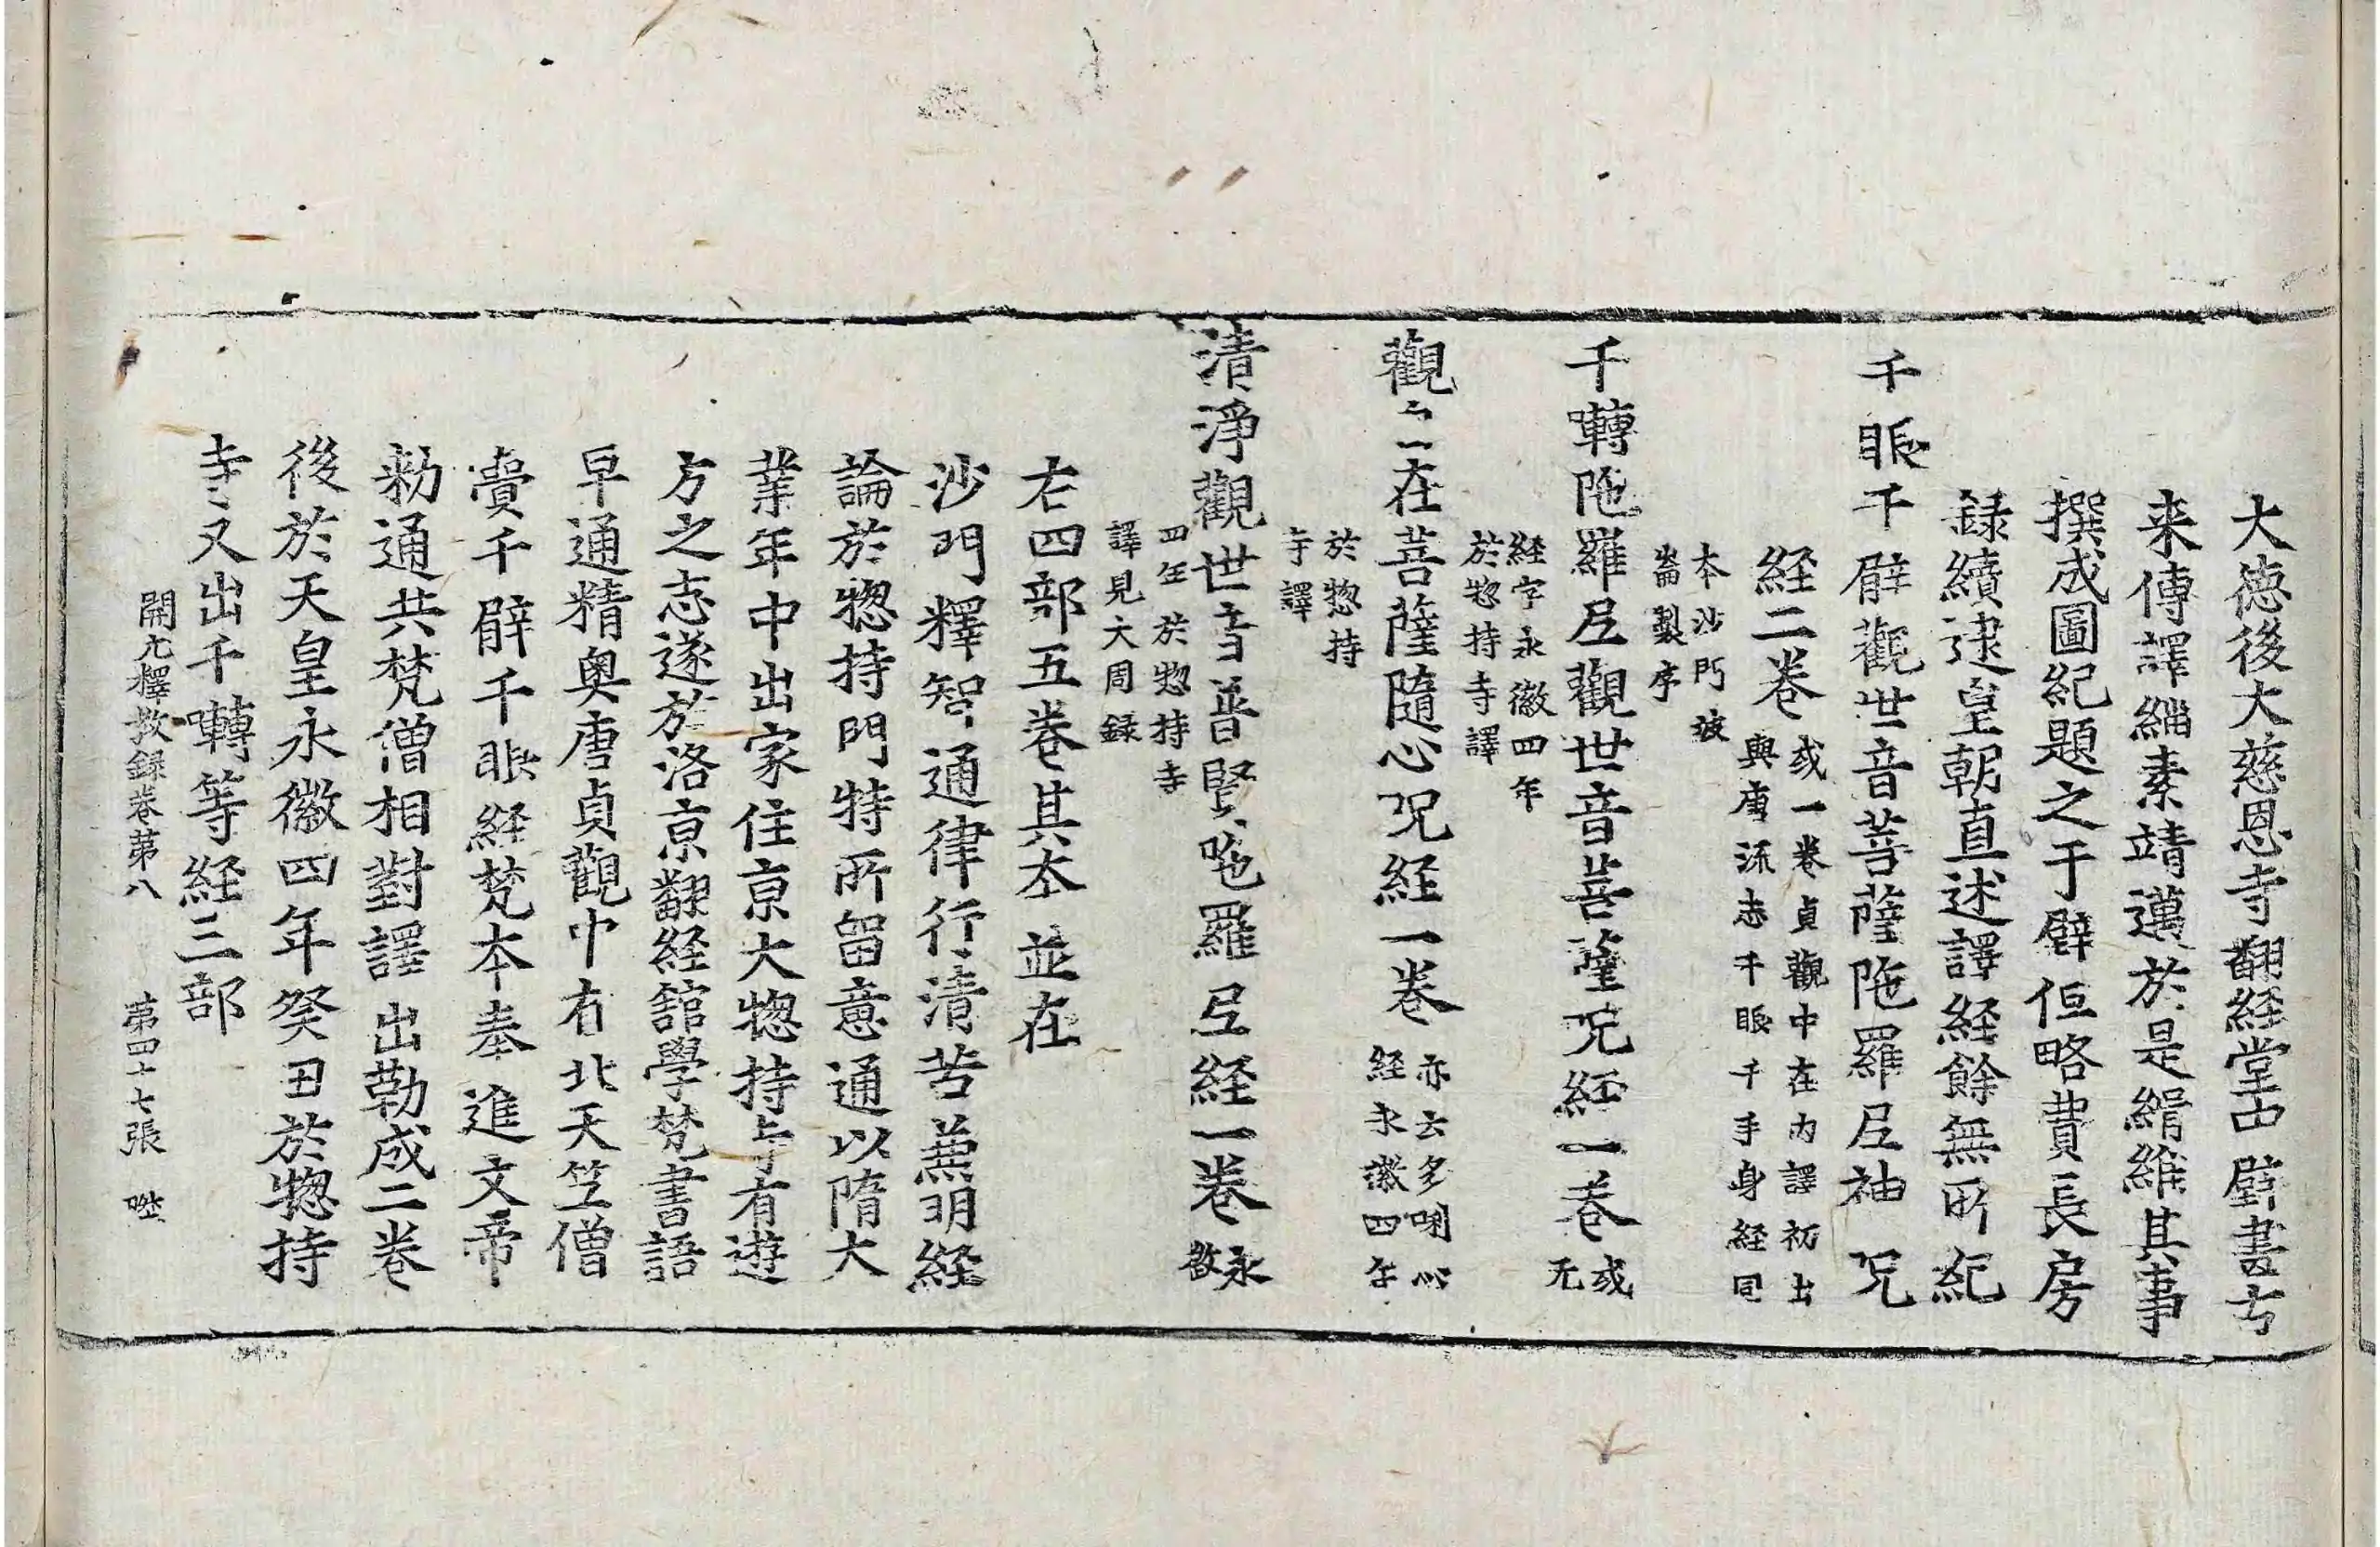 大德後大慈恩寺翻経堂中壁畫古
来傳譯緇素靖邁於是緝維其事
撰成圖紀題之于壁但略費長房
録續逮皇朝直述譯経餘無所紀
千眼千臂觀世音菩薩陁羅尼神呪
経二卷
或一卷貞觀中在内譯初出
與唐流志千眼千手身経同
本沙門波
崙製序
千囀陁羅尼觀世音菩薩呪経一卷
或
无
経字永徽四年
於惣持寺譯
觀自在菩薩隨心呪経一卷
亦云多唎心
経永徽四年
於惣持
寺譯
清淨觀世音普賢陁羅尼経一卷
永
徽
四年於惣持寺
譯見大周録
右四部五卷其本並在
沙門釋智通律行清苦兼明経
論於惣持門特所留意通以隋大
業年中出家住京大惣持寺有遊
方之志遂於洛京翻経舘學梵書語
早通精奥唐貞觀中有北天笁僧
賷千臂千眼経梵本奉進文帝
勑通共梵僧相對譯出勒成二卷
後於天皇永徽四年癸丑於惣持
寺又出千囀等経三部
開元釋教録卷苐八 苐四十七張